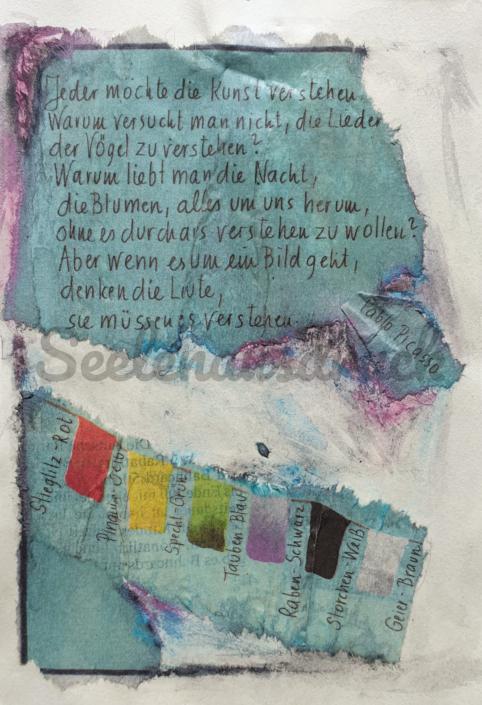 Jeder möchte die Kunst verstehen.
Warum versucht man nicht, die Lieder
der Vögel zu verstehen?
Warum liebt man die Nacht,
die Blumen, alles um uns herum,
ohne es durchaus verstehen zu wollen?
Aber wenn es um ein Bild geht,
denken die Leute,
sie müssen es verstehen.
Pablo Picasso
Seelenausdruck
Stieglitz-Rot
Specht-Grün
Tauben-Blau
Raben-Schwarz
Storchen-Weiß
Geier-Braun